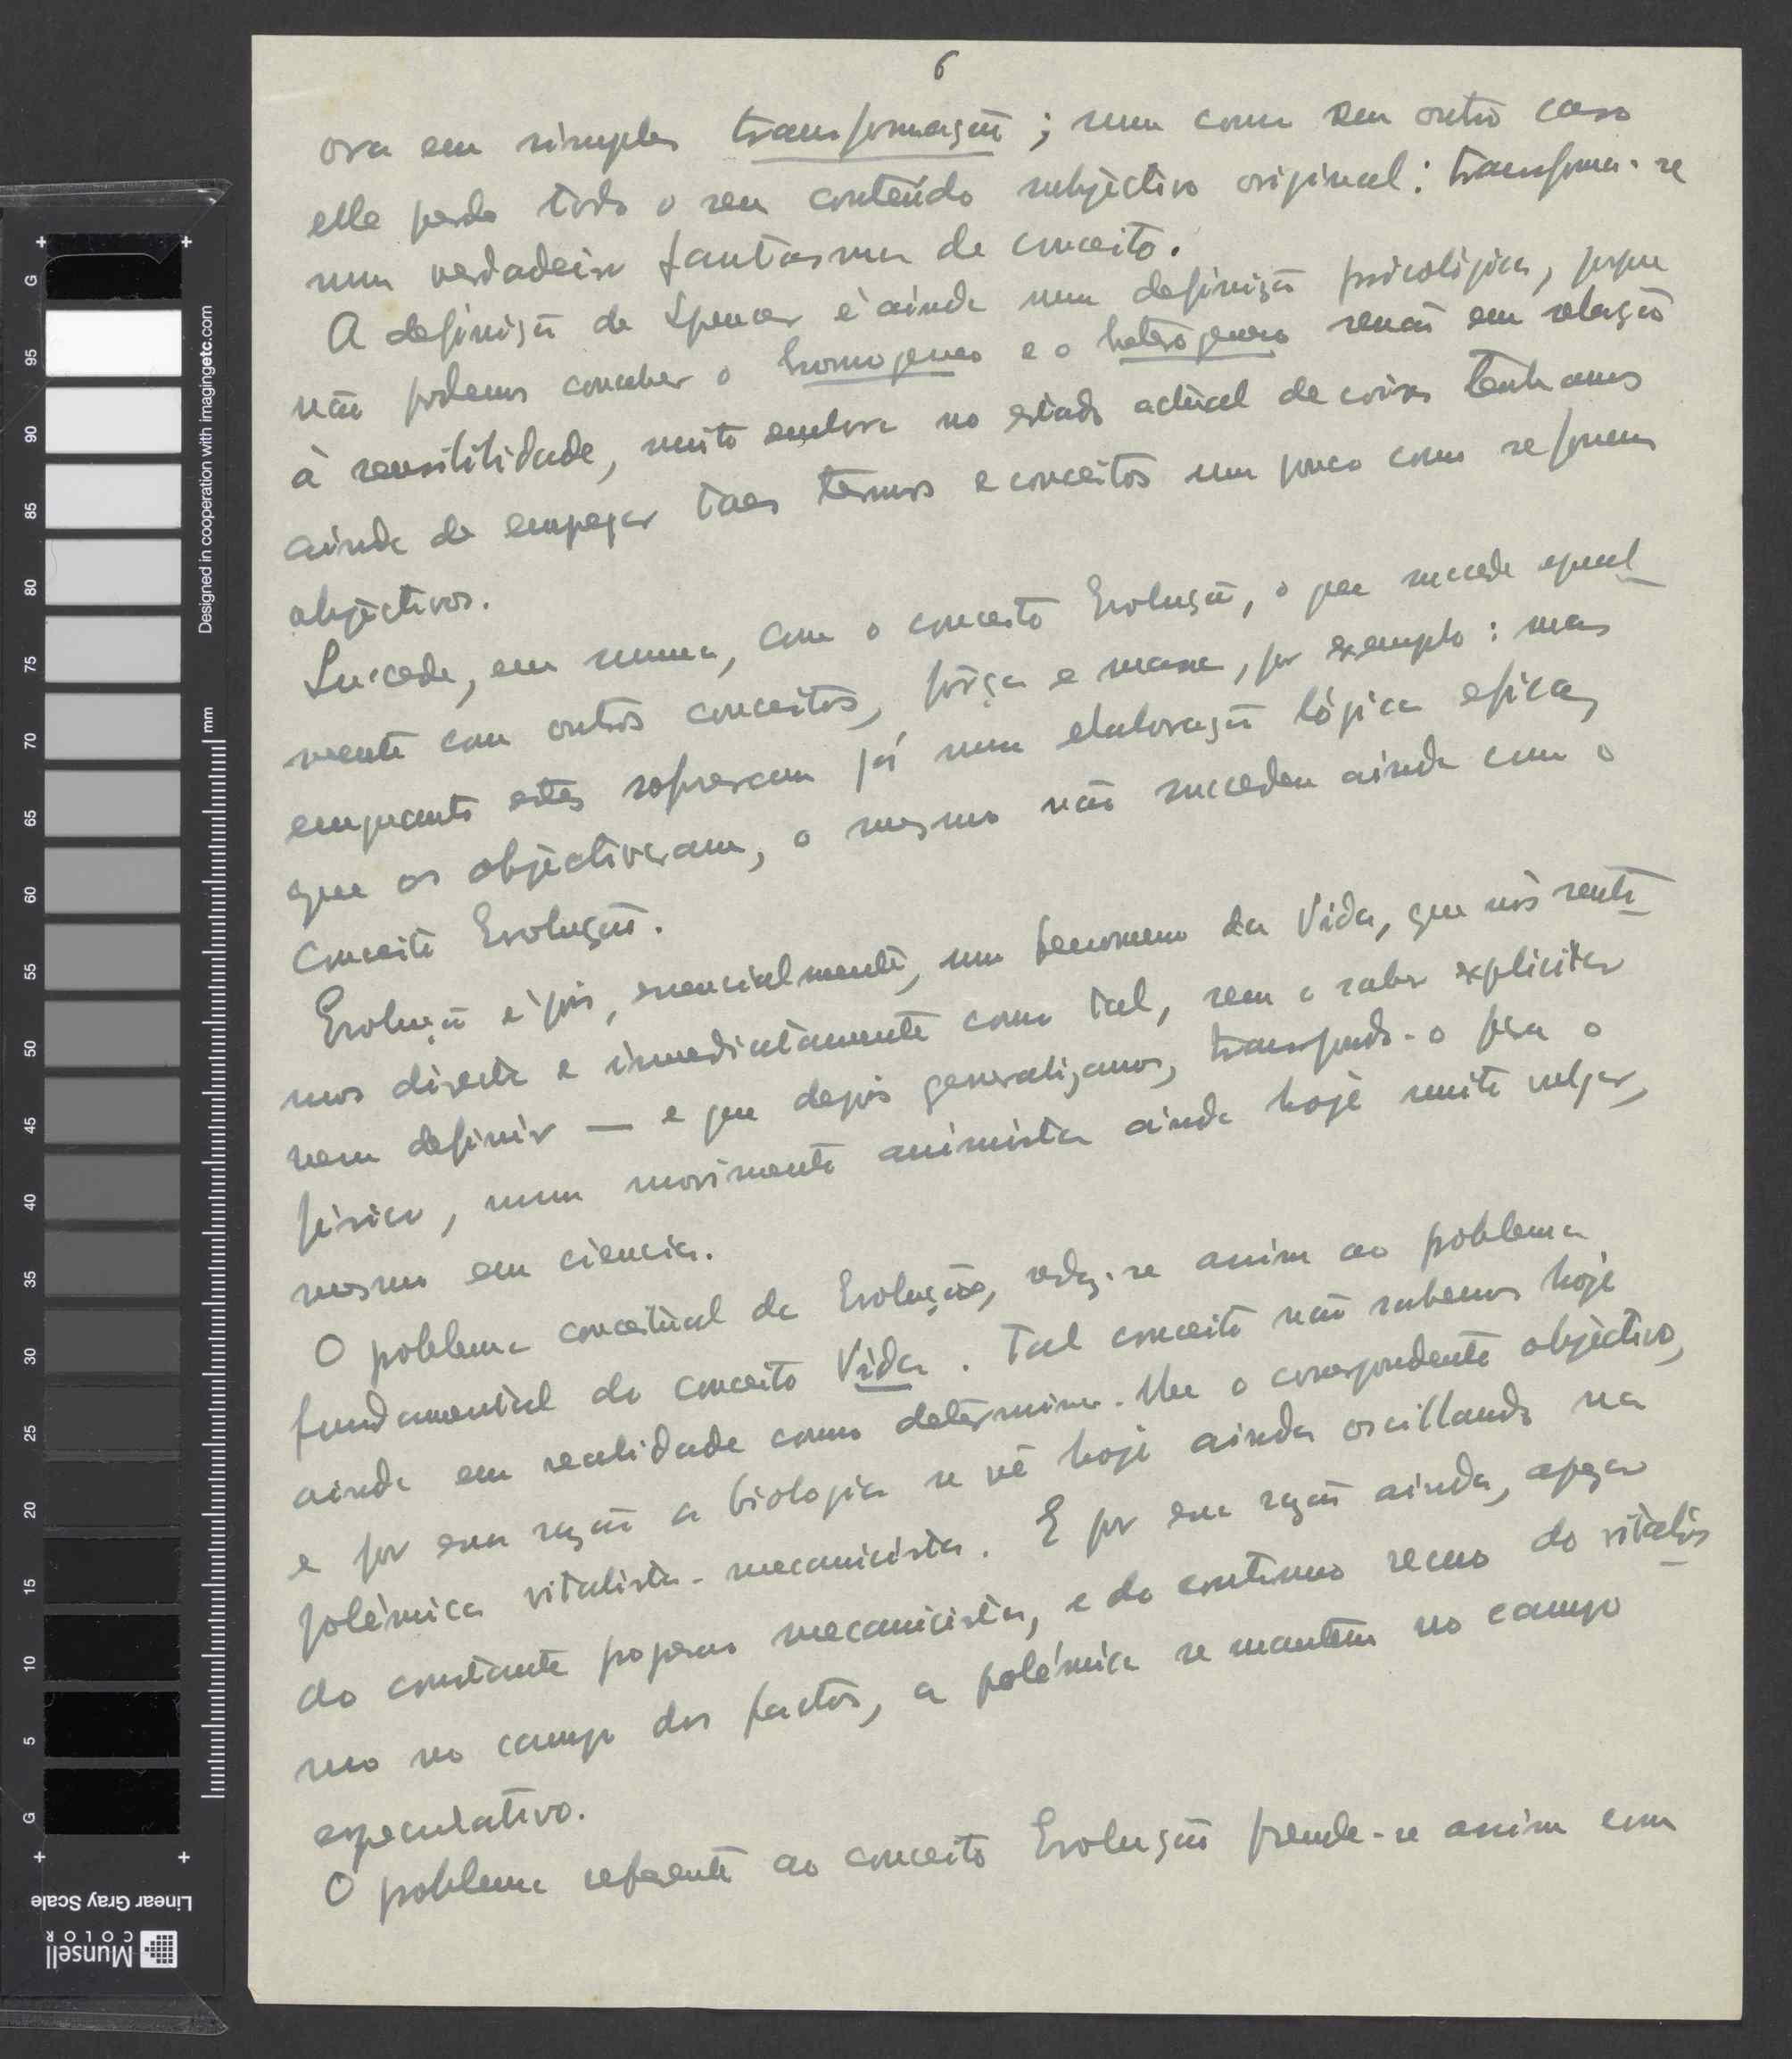 6
ora em simples transformação; num como em outro caso
elle perde todo o seu conteúdo subjectivo original: transforma-se
num verdadeiro fantasma de conceito.
A definição de Spencer é ainda uma definição psicológica, porque
não podemos conceber o homogeneo e o heterogeneo senão em relação
à sensibilidade, muito embora no estado actual de coisas tenhamos
ainda de empregar taes termos e conceitos um pouco como se fossem
objectivos.
Succede, em summa, com o conceito Evolução, o que succede egual-
mente com outros conceitos, fôrça e massa, por exemplo: mas
emquanto estes sofreram já uma elaboração lógica eficaz
que os objectivaram, o mesmo não succedeu ainda com o
conceito Evolução.
Evolução é pois, essencialmente, um fenomeno da Vida, que nós senti-
mos directa e immediatamente como tal, sem o saber explicitar
nem definir — e que depois generalizamos, transpondo-o para o
físico, num movimento animista ainda hoje muito vulgar,
mesmo em ciencia.
O problema conceitual da Evolução, reduz-se assim ao problema
fundamental do conceito Vida. Tal conceito não sabemos hoje
ainda em realidade como determinar-lhe o correspondente objectivo,
e por essa razão a biologia se vê hoje ainda oscillando na
polémica vitalista-mecanicista. E por essa razão ainda, apezar
do constante progresso mecanicista, e do contínuo recuo do vitalis-
mo no campo dos factos, a polémica se mantem no campo
especulativo.
O problema referente ao conceito Evolução prende-se assim com
Designed in cooperation with imagingetc.com
mm
G
95
90
85
80
75
70
65
60
55
50
45
40
35
30
25
20
15
10
5
G
Linear Gray Scale
Munsell
COLOR